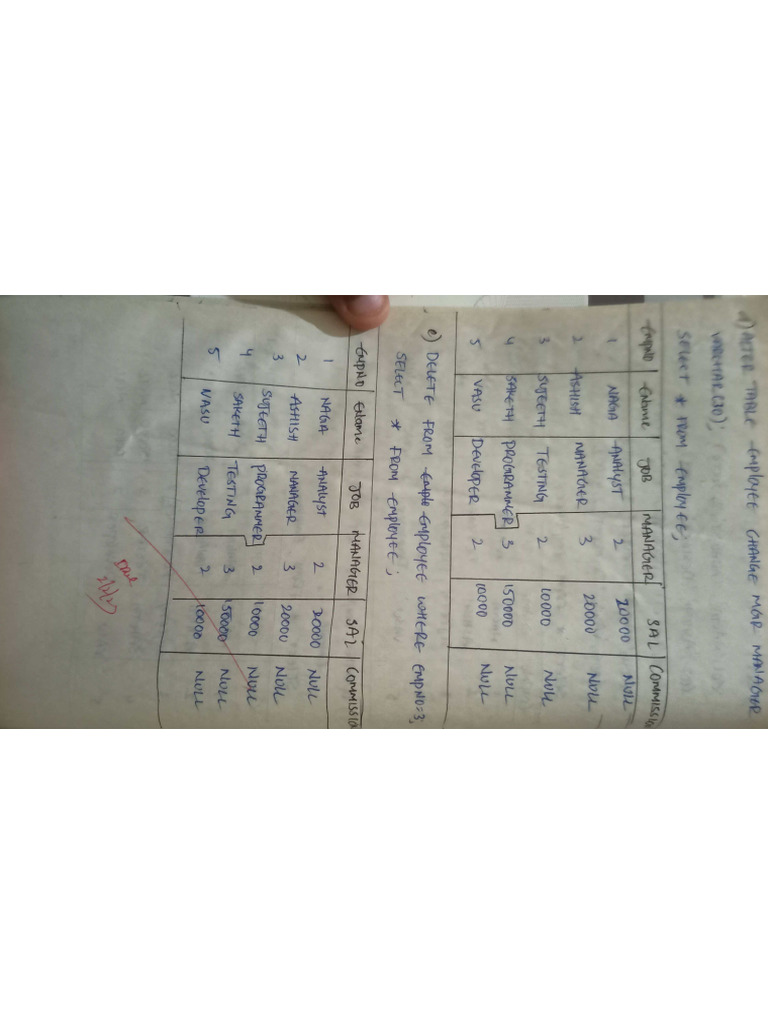 d) ALTER TABLE Employee CHANGE MGR MANAGER
VARCHAR(30);
SELECT * FROM Employee;
EmpNO Ename JOB MANAGER SAL Commissio
1 NAGA ANALYST 2 20000 NULL
2 ASHISH MANAGER 3 20000 NULL
3 SUJEETH TESTING 2 10000 NULL
4 SAKETH PROGRAMMER 3 150000 NULL
5 VASU Developer 2 10000 NULL
e) DELETE FROM Employee WHERE EmpNO=3;
SELECT * FROM Employee;
EmpNO Ename JOB MANAGER SAL Commissio
1 NAGA ANALYST 2 20000 NULL
2 ASHISH MANAGER 3 20000 NULL
3 SUJEETH PROGRAMMER 2 10000 NULL
4 SAKETH TESTING 3 150000 NULL
5 VASU Developer 2 10000 NULL